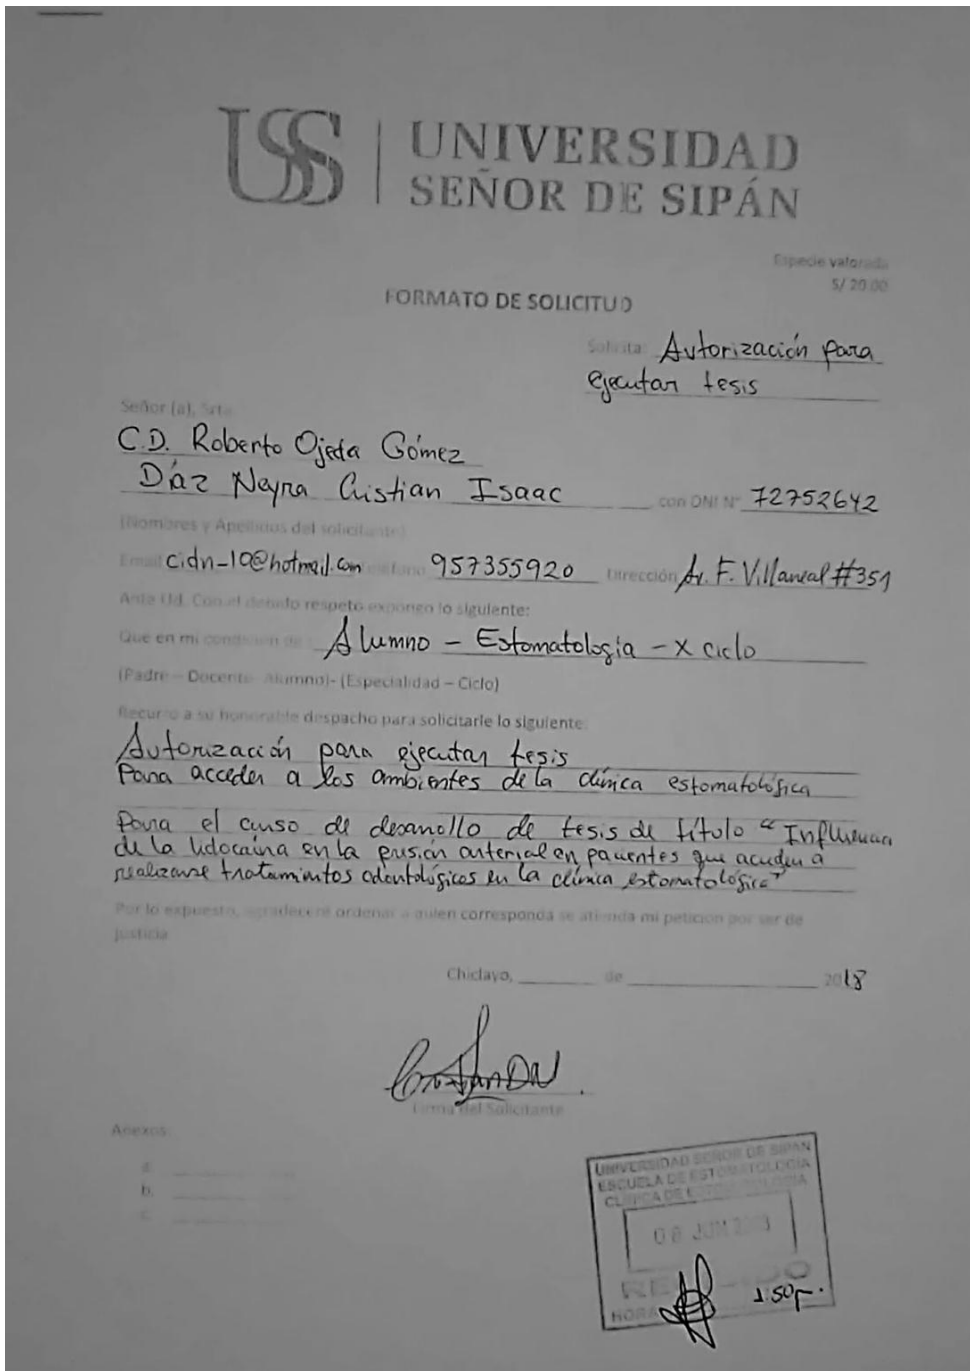 USS | UNIVERSIDAD
SEÑOR DE SIPÁN
Especie valorada
S/ 20.00
FORMATO DE SOLICITUD
Solicita: Autorización para
ejecutar tesis
Señor (a), Srta.
C.D. Roberto Ojeda Gómez
Díaz Neyra Cristian Isaac con DNI N° 72752642
(Nombres y Apellidos del solicitante)
Email cidn_10@hotmail.com teléfono 957355920 Dirección Av. F. Villarreal #351
Ante Ud. Con el debido respeto expongo lo siguiente:
Que en mi condición de Alumno - Estomatología - X ciclo
(Padre – Docente- Alumno)- (Especialidad – Ciclo)
Recurro a su honorable despacho para solicitarle lo siguiente:
Autorización para ejecutar tesis
Para acceder a los ambientes de la clínica estomatológica
Para el curso de desarrollo de tesis de título "Influencia
de la lidocaína en la presión arterial en pacientes que acuden a
realizarse tratamientos odontológicos en la clínica estomatológica"
Por lo expuesto, agradeceré ordenar a quien corresponda se atienda mi petición por ser de
justicia
Chiclayo, ______ de ______________ 2018
Firma del Solicitante
Anexos:
a. ______
b. ______
c. ______
UNIVERSIDAD SEÑOR DE SIPÁN
ESCUELA DE ESTOMATOLOGÍA
CLÍNICA DE ESTOMATOLOGÍA
08 JUN
RECIBIDO
HORA 1:50p.